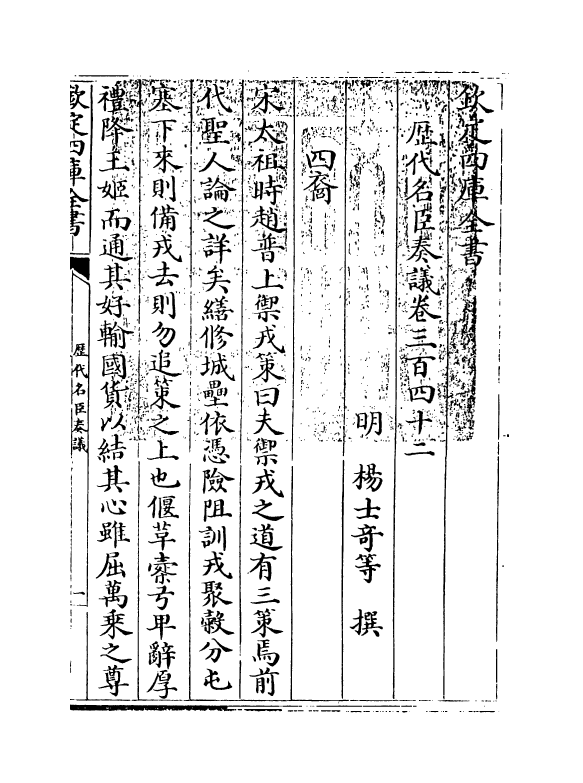 欽定四庫全書
歴代名臣奏議卷三百四十二
明 楊士奇等 撰
四裔
宋太祖時趙普上禦戎策曰夫禦戎之道有三策焉前
代聖人論之詳矣繕修城壘依憑險阻訓戎聚糓分屯
塞下來則備戎去則勿追策之上也偃革櫜弓卑辭厚
禮降王姬而通其好輸國貨以結其心雖屈萬乘之尊
欽定四庫全書
歴代名臣奏議
一